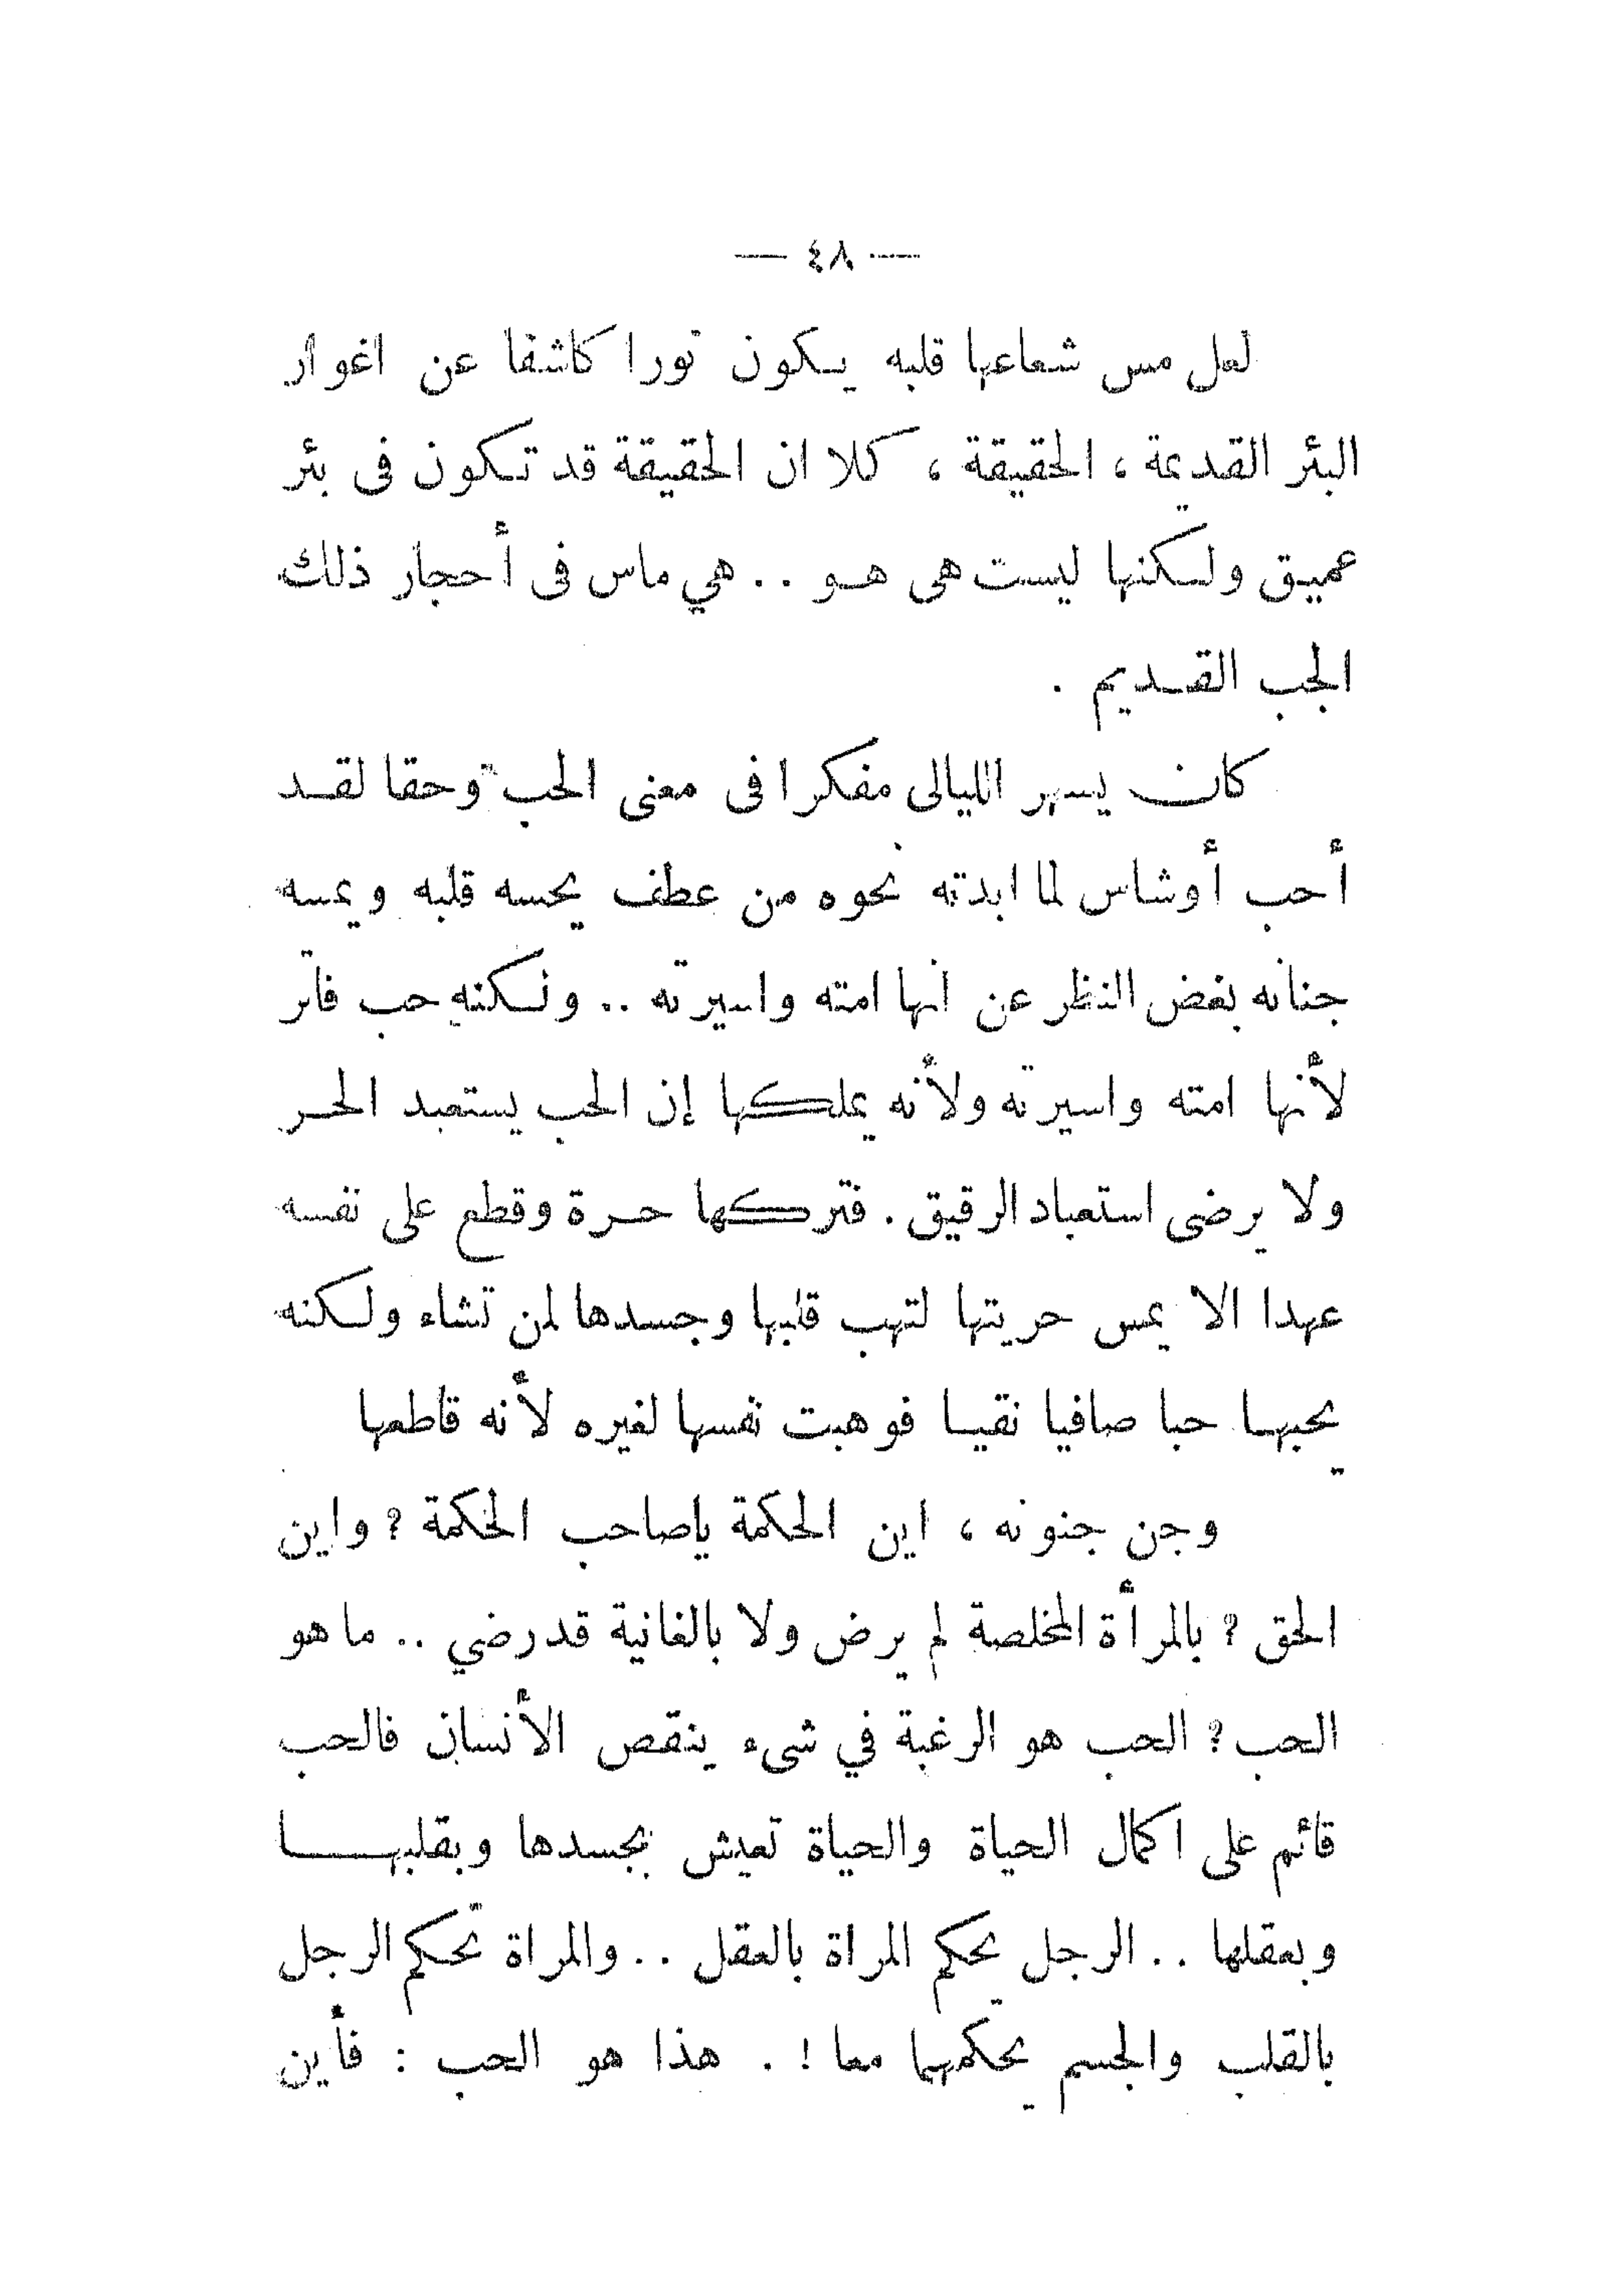 — ٤٨ —
لعل مس شعاعها قلبه يكون نورا كاشفا عن اغوار
البئر القديمة ، الحقيقة ، كلا ان الحقيقة قد تكون فى بئر
عميق ولكنها ليست هى هو . . هي ماس فى أحجار ذلك
الجب القديم .
كان يسهر الليالى مفكرا فى معنى الحب وحقا لقد
أحب أوشاس لما ابدته نحوه من عطف يحسه قلبه ويمسه
جنانه بغض النظر عن انها امته واسيرته .. ولكنه حب فاتر
لأنها امته واسيرته ولأنه يملكها إن الحب يستعبد الحر
ولا يرضى استعباد الرقيق . فتركها حرة وقطع على نفسه
عهدا الا يمس حريتها لتهب قلبها وجسدها لمن تشاء ولكنه
يحبها حبا صافيا نقيا فوهبت نفسها لغيره لأنه قاطعها
وجن جنونه ، اين الحكمة ياصاحب الحكمة ؟ واين
الحق ؟ بالمرأة المخلصة لم يرض ولا بالغانية قد رضي .. ما هو
الحب ؟ الحب هو الرغبة في شىء ينقص الأنسان فالحب
قائم على اكمال الحياة والحياة تعيش بجسدها وبقلبها
وبعقلها . . الرجل يحكم المراة بالعقل . . والمراة تحكم الرجل
بالقلب والجسم يحكمهما معا ! . هذا هو الحب : فأين